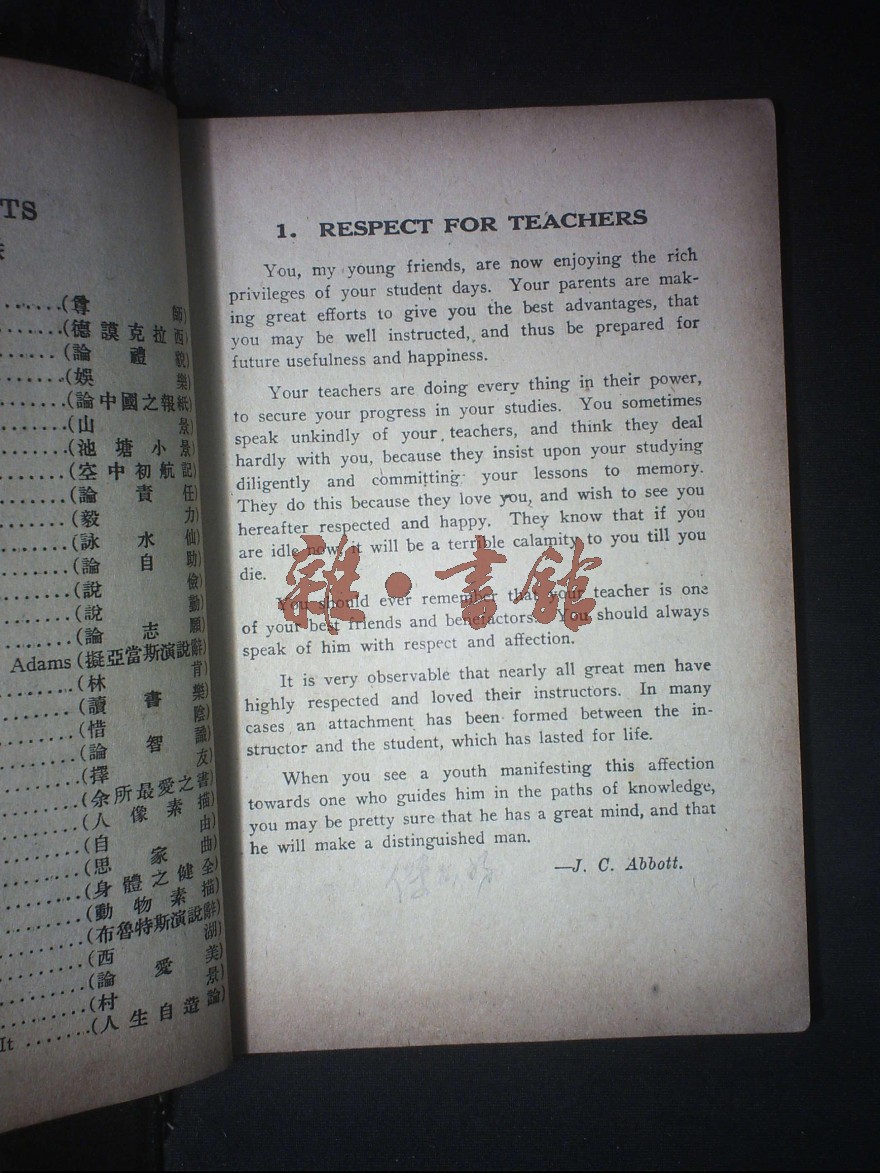 TS
(尊師)
(德謨克拉西)
(論禮貌)
(娛樂)
(論中國之報紙)
(山景)
(池塘小景)
(空中初航記)
(論責任)
(毅力)
(詠水仙)
(論自助)
(說儉)
(說勤)
(論志願)
Adams (擬亞當斯演說辭)
(林肯)
(讀書樂)
(惜陰)
(論智識)
(擇友)
(余所最愛之書)
(人像素描)
(自由)
(思家曲)
(身體之健全)
(動物素描)
(布魯特斯演說辭)
(西湖)
(論愛美)
(村景)
It (人生自造論)
1. RESPECT FOR TEACHERS
You, my young friends, are now enjoying the rich
privileges of your student days. Your parents are mak-
ing great efforts to give you the best advantages, that
you may be well instructed, and thus be prepared for
future usefulness and happiness.
Your teachers are doing every thing in their power,
to secure your progress in your studies. You sometimes
speak unkindly of your teachers, and think they deal
hardly with you, because they insist upon your studying
diligently and committing your lessons to memory.
They do this because they love you, and wish to see you
hereafter respected and happy. They know that if you
are idle now, it will be a terrible calamity to you till you
die.
You should ever remember that your teacher is one
of your best friends and benefactors. You should always
speak of him with respect and affection.
It is very observable that nearly all great men have
highly respected and loved their instructors. In many
cases an attachment has been formed between the in-
structor and the student, which has lasted for life.
When you see a youth manifesting this affection
towards one who guides him in the paths of knowledge,
you may be pretty sure that he has a great mind, and that
he will make a distinguished man.
—J. C. Abbott.
雜·書館